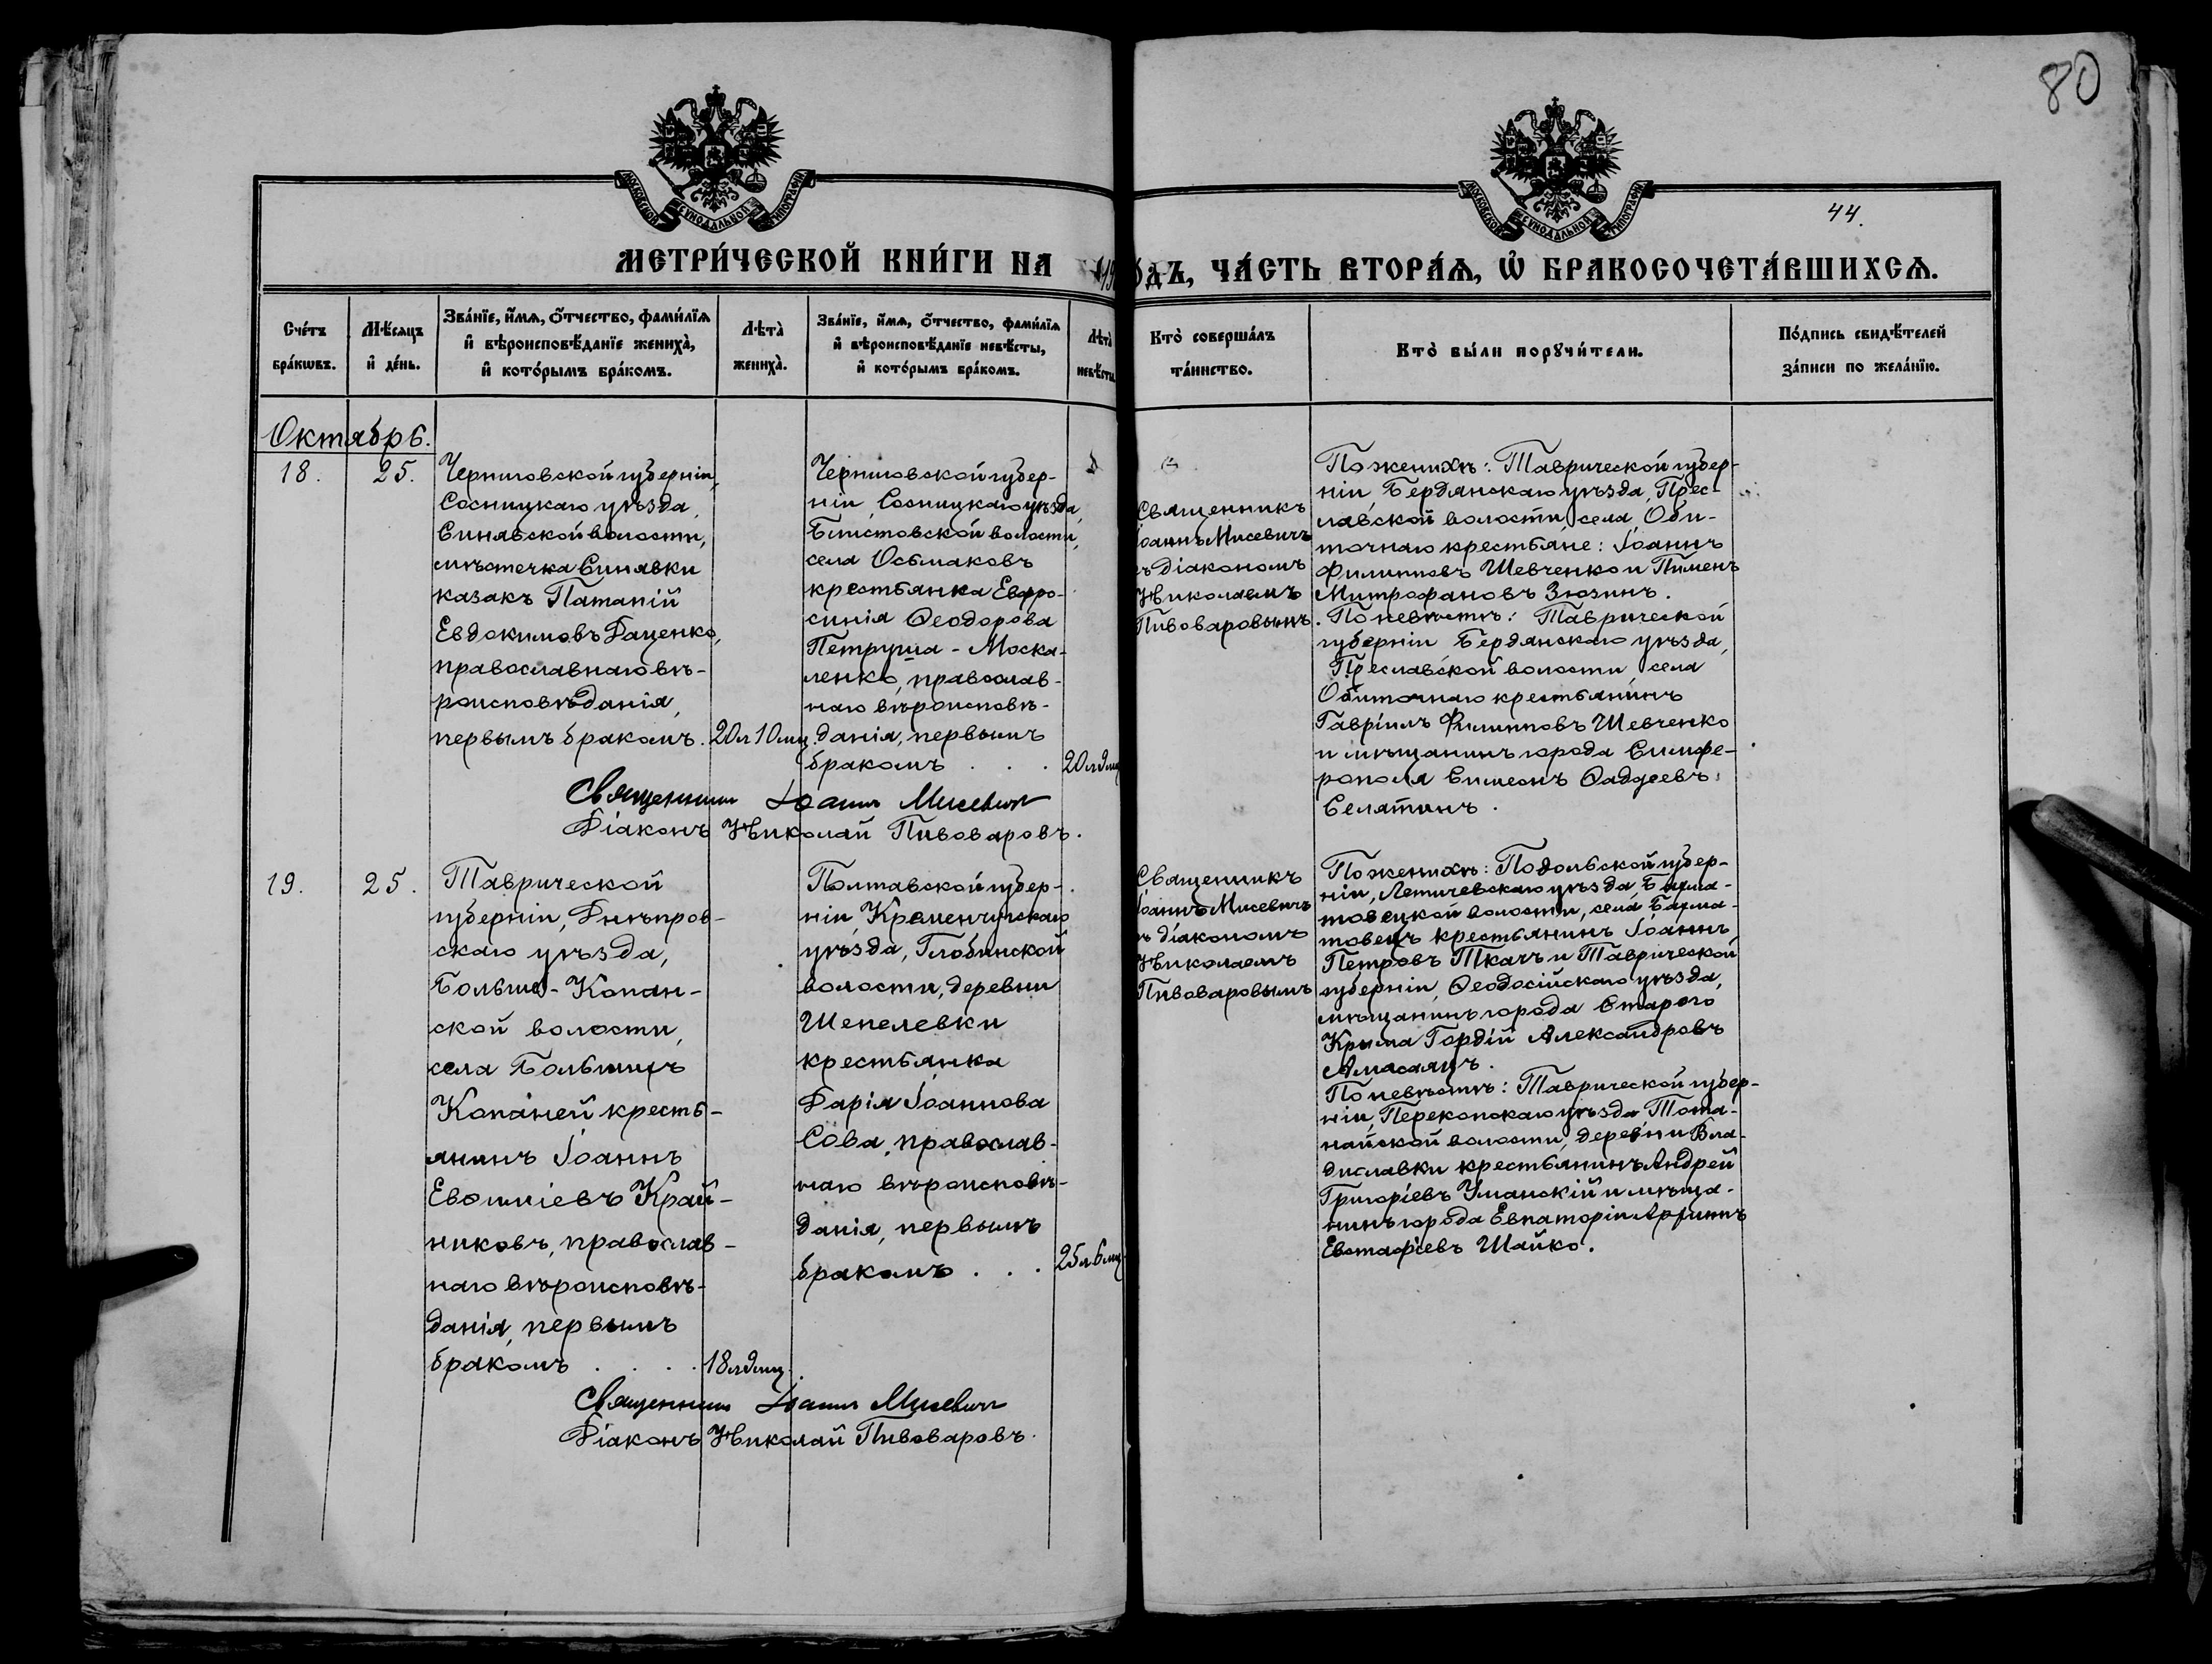 80
МОСКОВСКОЙ СѴНОДАЛЬНОЙ ТИПОГРАФІИ
МОСКОВСКОЙ СѴНОДАЛЬНОЙ ТИПОГРАФІИ
44.
МЕТРИ́ЧЕСКОЙ КНИ́ГИ НА
ОДЪ, ЧА́СТЬ ВТОРА́Ѧ, Ѡ҆ БРАКОСОЧЕТА́ВШИХСѦ.
Сче́тъ
бра́кѡвъ.
Мѣ́сяцъ
и҆ де́нь.
Зва́нїе, и҆́мѧ, о҆́тчество, фами́лїѧ
и҆ вѣроисповѣ́данїе жениха̀,
и҆ кото́рымъ бра́комъ.
Лѣта̀
жениха̀.
Зва́нїе, и҆́мѧ, о҆́тчество, фами́лїѧ
и҆ вѣроисповѣ́данїе невѣ́сты,
и҆ кото́рымъ бра́комъ.
Лѣта̀
невѣ́сты
Кто̀ соверша́лъ
та́инство.
Кто̀ бы́ли порꙋчи́тели.
По́дпись свидѣ́телей
за́писи по жела́нїю.
Октябрь.
18.
25.
Черниговской губерніи,
Сосницкаго уѣзда,
Синявской волости,
мѣстечка Синявки
казакъ Патапій
Евдокимовъ Даценко,
православнаго вѣ-
роисповѣданія,
первымъ бракомъ.
20 л 10 мц.
Черниговской губер-
ніи, Сосницкаго уѣзда,
Блистовской волости,
села Осьмаковъ
крестьянка Евфро-
синія Ѳеодорова
Петруша - Моска-
ленко, православ-
наго вѣроисповѣ-
данія, первымъ
бракомъ . . .
Священникъ
Іоаннъ Мисевичъ
съ діакономъ
Николаемъ
Пивоваровымъ.
По женихѣ: Таврической губер-
ніи, Бердянскаго уѣзда, Прес-
лавской волости, села Оби-
точнаго крестьяне: Іоаннъ
Филипповъ Шевченко и Пименъ
Митрофановъ Зюзинъ.
По невѣстѣ: Таврической
губерніи Бердянскаго уѣзда,
Преславской волости, села
Обиточнаго крестьянинъ
Гавріилъ Филипповъ Шевченко
и мѣщанинъ города Симфе-
рополя Симеонъ Ѳадѣевъ
Селятинъ.
Священникъ Іоаннъ Мисевичъ
Діаконъ Николай Пивоваровъ.
19.
25.
Таврической
губерніи, Днѣпров-
скаго уѣзда,
Больше-Копан-
ской волости,
села Большихъ
Копаней кресть-
янинъ Іоаннъ
Евфиміевъ Край-
никовъ, православ-
наго вѣроисповѣ-
данія, первымъ
бракомъ . . . .
18 л 9 мц.
Полтавской губер-
ніи, Кременчугскаго
уѣзда, Глобинской
волости, деревни
Шепелевки
крестьянка
Дарія Іоаннова
Сова, православ-
наго вѣроисповѣ-
данія, первымъ
бракомъ . . .
25 л 6 мц
Священникъ
Іоаннъ Мисевичъ
съ діакономъ
Николаемъ
Пивоваровымъ
По женихѣ: Подольской губер-
ніи, Летичевскаго уѣзда, Бахма-
товецкой волости, села Бахма-
товецъ крестьянинъ Іоаннъ
Петровъ Ткачъ и Таврической
губерніи, Ѳеодосійскаго уѣзда,
мѣщанинъ города Стараго
Крыма Гордій Александровъ
По невѣстѣ: Таврической губер-
ніи, Перекопскаго уѣзда Тота-
найской волости, деревни Вла-
диславки крестьянинъ Андрей
Григоріевъ Уманскій и мѣща-
нинъ города Евпаторіи
Евстафіевъ Шайко.
Священникъ Іоаннъ Мисевичъ
Діаконъ Николай Пивоваровъ.